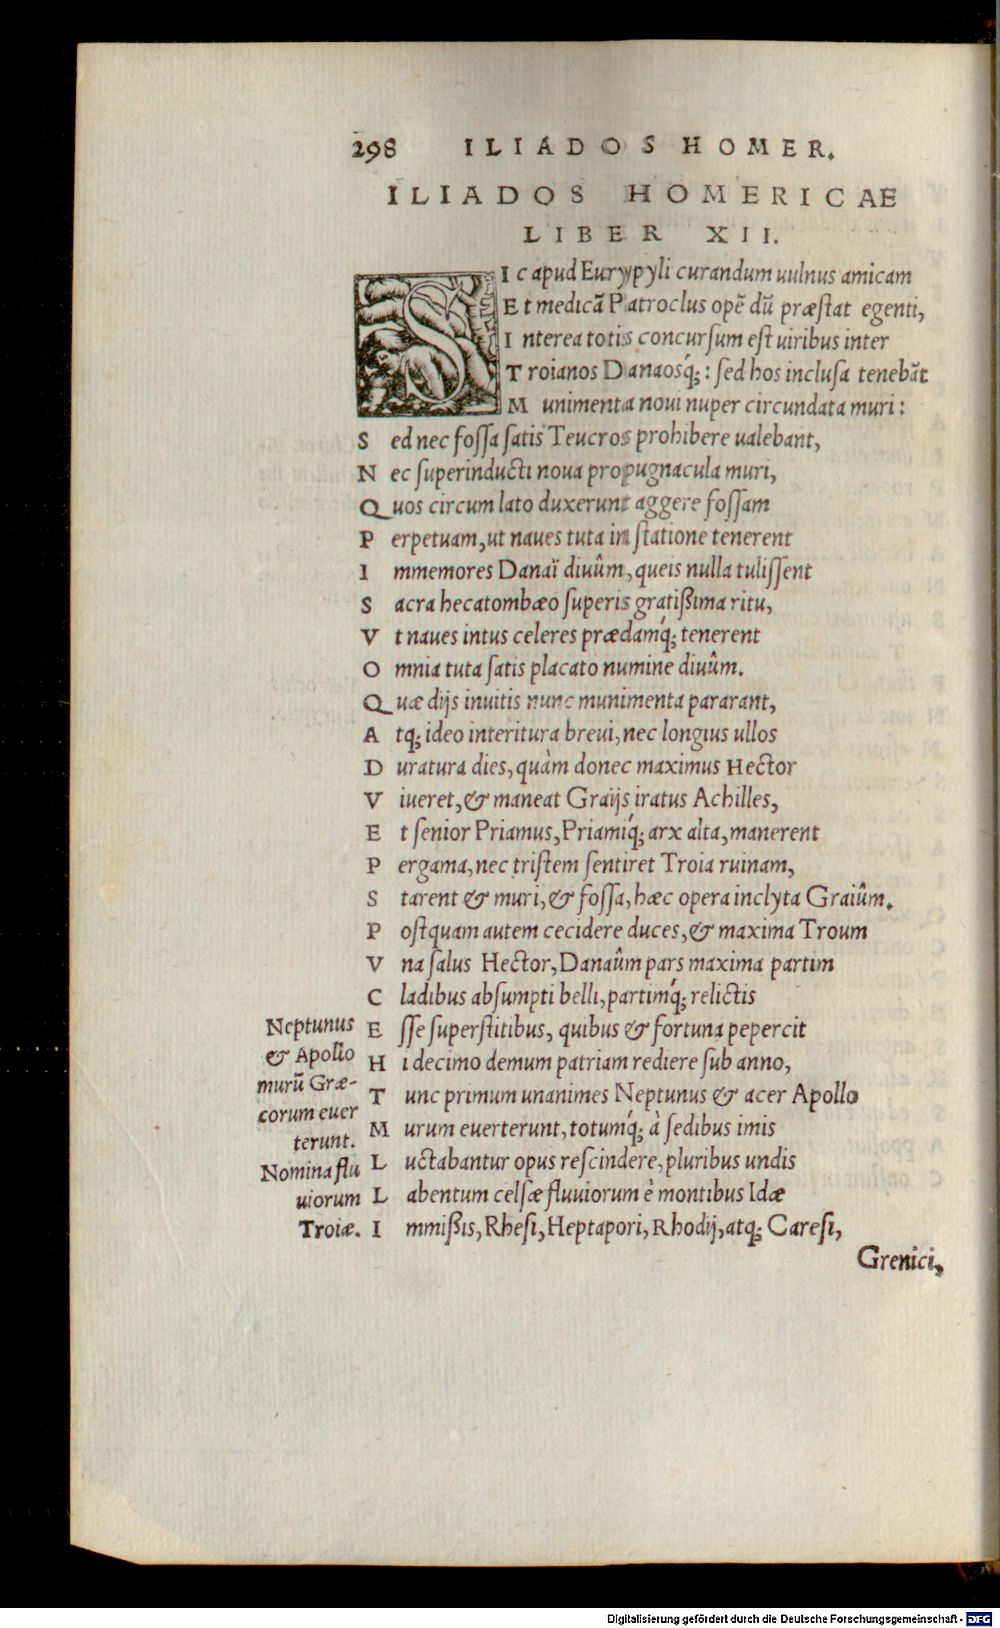 298 ILIADOS HOMER.
ILIADOS HOMERICAE
LIBER XII.
SIc apud Eurypyli curandum uulnus amicam
Et medicā Patroclus opē dū præstat egenti,
Interea totis concursum est uiribus inter
Troianos Danaosq́;: sed hos inclusa tenebāt
Munimenta noui nuper circundata muri:
Sed nec fossa satis Teucros prohibere ualebant,
Nec superinducti noua propugnacula muri,
Quos circum lato duxerunt aggere fossam
Perpetuam, ut naues tuta in statione tenerent
Immemores Danaï diuûm, queis nulla tulissent
Sacra hecatombæo superis gratißima ritu,
Vt naues intus celeres prædamq́; tenerent
Omnia tuta satis placato numine diuûm.
Quæ dijs inuitis nunc munimenta pararant,
Atq; ideo interitura breui, nec longius ullos
Duratura dies, quàm donec maximus Hector
Viueret, & maneat Graijs iratus Achilles,
Et senior Priamus, Priamiq́; arx alta, manerent
Pergama, nec tristem sentiret Troia ruinam,
Starent & muri, & fossa, hæc opera inclyta Graiûm.
Postquam autem cecidere duces, & maxima Troum
Vna salus Hector, Danaûm pars maxima partim
Cladibus absumpti belli, partimq́; relictis
Esse superstitibus, quibus & fortuna pepercit
Hi decimo demum patriam rediere sub anno,
Tunc primum unanimes Neptunus & acer Apollo
Murum euerterunt, totumq́; à sedibus imis
Luctabantur opus rescindere, pluribus undis
Labentum celsæ fluuiorum è montibus Idæ
Immißis, Rhesi, Heptapori, Rhodij, atq; Caresi,
Grenici,
Neptunus
& Apollo
murū Græ-
corum euer
terunt.
Nomina flu
uiorum
Troiæ.
Digitalisierung gefördert durch die Deutsche Forschungsgemeinschaft - DFG